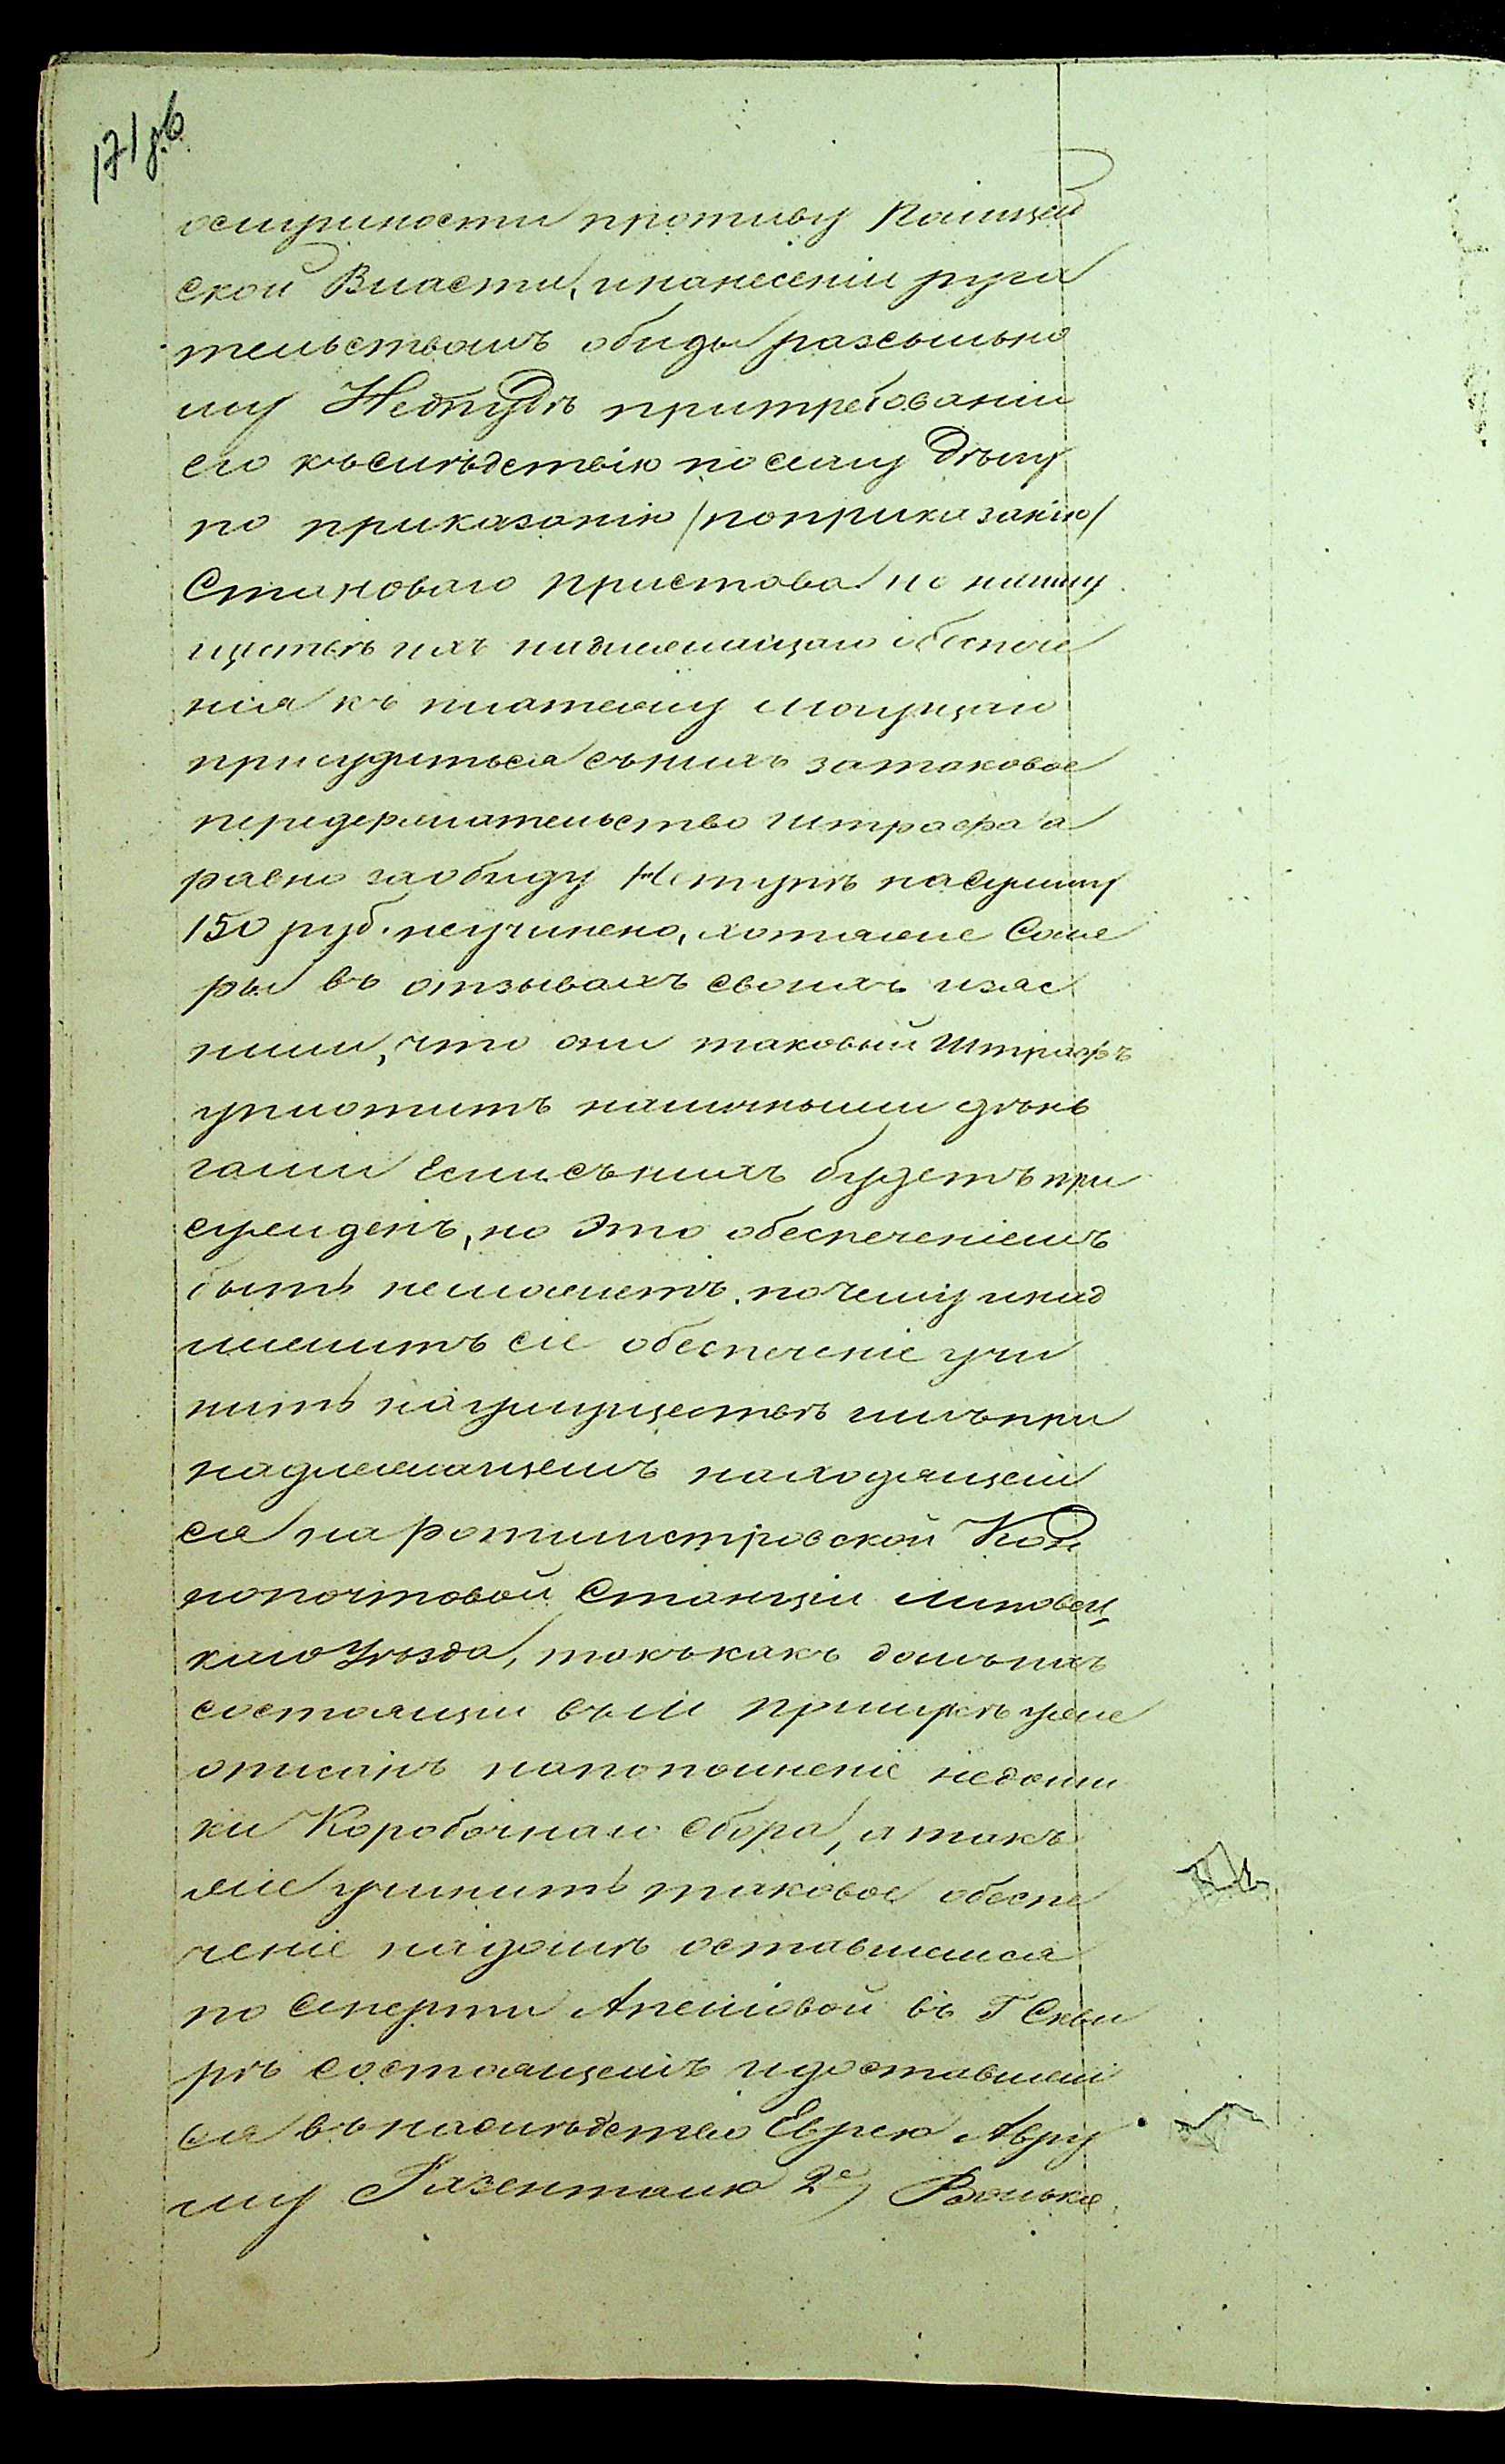 171 зв
ослушности противу Полицей
ской Власти, и нанесеніи руга
тельствомъ обиды разсыльно
му Непудѣ при требованіи
его къ слѣдствію по сему Дѣлу
по приказанію /по приказанію/
Становаго пристава на иму
ществѣ ихъ надлежащаго обеспече
нія къ платежу могущаго
присудиться съ нихъ за таковое
передержательство штрафа а
равно за обиду Непудѣ на сумму
150 руб. не учинено, хотя же
ры въ отзывахъ своихъ изяс
нили, что они таковый штрафъ
уплотитъ наличными день
гами Если съ нихъ будетъ при
сужденъ, но Это обеспеченіемъ
быть не можетъ. почему и над
лежитъ сіе обеспеченіе учи
нить на имуществѣ имъ при
надлежащемъ находящей
ся на ротмистровской Кон
нопочтовой Станціи Липовец
каго Уѣзда, такъ какъ домъ ихъ
состоящій въ м уже
описанъ на пополненіе недоим
ки Коробочнаго сбора, а так
же учинить таковое обеспе
ченіе на домѣ оставшемся
по Смерти въ Г Скви
рѣ состоящемъ и доставшем
ся въ наслѣдство Еврею Авру
му Розенталю 2е,